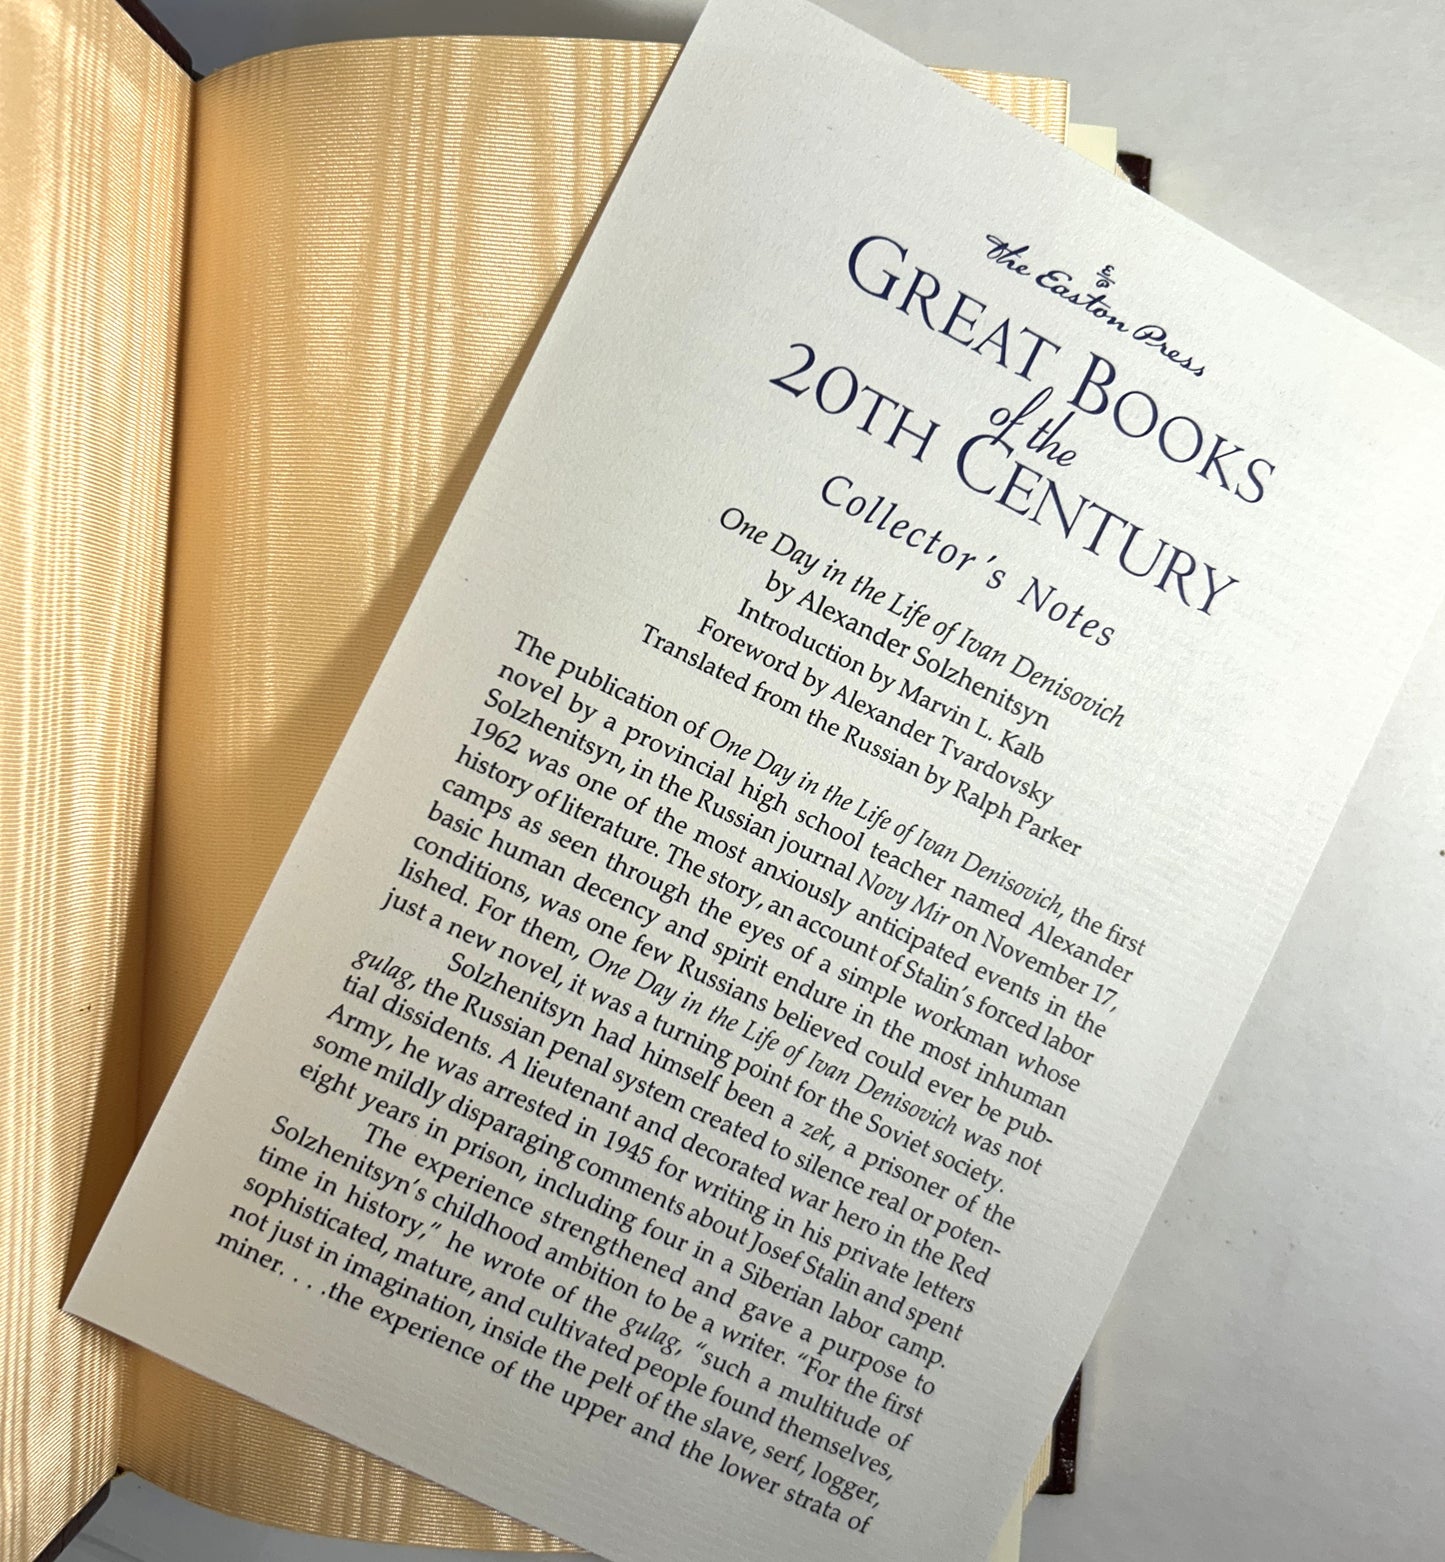 The Easton Press
GREAT BOOKS
of the
20TH CENTURY
Collector's Notes
One Day in the Life of Ivan Denisovich
by Alexander Solzhenitsyn
Introduction by Marvin L. Kalb
Foreword by Alexander Tvardovsky
Translated from the Russian by Ralph Parker
The publication of One Day in the Life of Ivan Denisovich, the first
novel by a provincial high school teacher named Alexander
Solzhenitsyn, in the Russian journal Novy Mir on November 17,
1962 was one of the most anxiously anticipated events in the
history of literature. The story, an account of Stalin's forced labor
camps as seen through the eyes of a simple workman whose
basic human decency and spirit endure in the most inhuman
conditions, was one few Russians believed could ever be pub-
lished. For them, One Day in the Life of Ivan Denisovich was not
just a new novel, it was a turning point for the Soviet society.
Solzhenitsyn had himself been a zek, a prisoner of the
gulag, the Russian penal system created to silence real or poten-
tial dissidents. A lieutenant and decorated war hero in the Red
Army, he was arrested in 1945 for writing in his private letters
some mildly disparaging comments about Josef Stalin and spent
eight years in prison, including four in a Siberian labor camp.
The experience strengthened and gave a purpose to
Solzhenitsyn's childhood ambition to be a writer. "For the first
time in history," he wrote of the gulag, "such a multitude of
sophisticated, mature, and cultivated people found themselves,
not just in imagination, inside the pelt of the slave, serf, logger,
miner. . . .the experience of the upper and the lower strata of